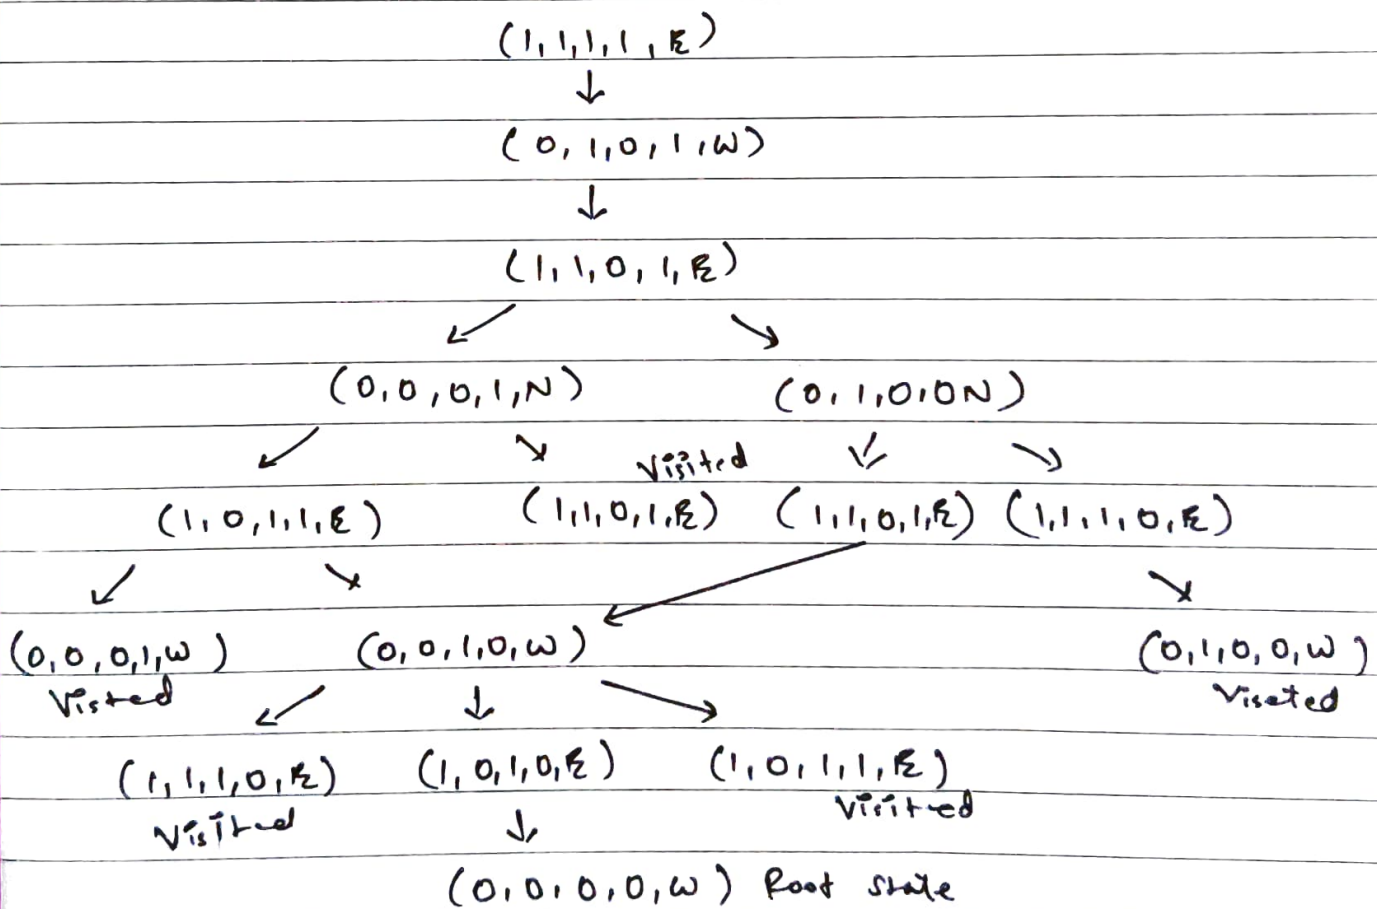 (1,1,1,1,E)
↓
(0,1,0,1,W)
↓
(1,1,0,1,E)
↙ ↘
(0,0,0,1,N) (0,1,0,0N)
↙ ↘ Visited ↙ ↘
(1,0,1,1,E) (1,1,0,1,E) (1,1,0,1,E) (1,1,1,0,E)
↙ ↘ ↙ ↘
(0,0,0,1,W) (0,0,1,0,W) (0,1,0,0,W)
Visted Viseted
↙ ↓ ↘
(1,1,1,0,E) (1,0,1,0,E) (1,0,1,1,E)
Visited Visited
↓
(0,0,0,0,W) Root state